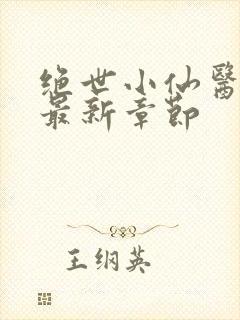 绝世小仙醫
最新章節
王纲英